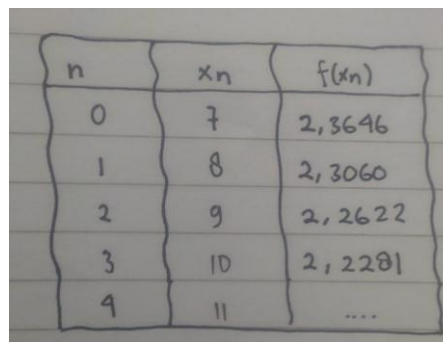 n xn f(xn)
0 7 2,3646
1 8 2,3060
2 9 2,2622
3 10 2,2281
4 11 ....